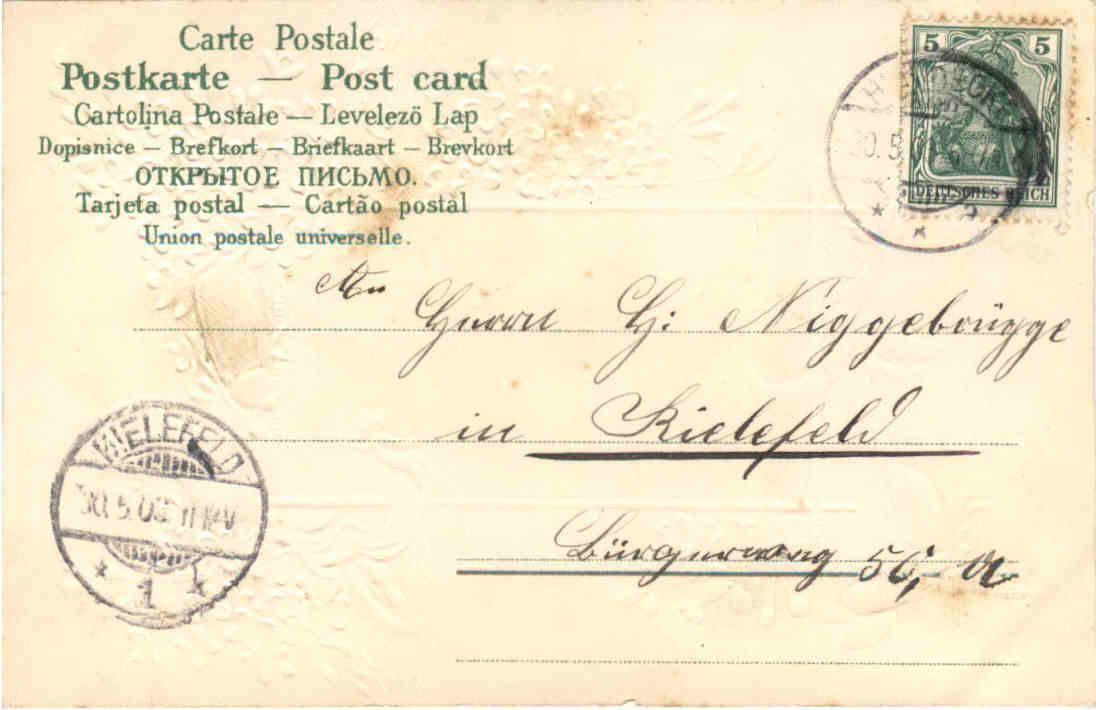 Carte Postale
Postkarte — Post card
Cartolina Postale — Levelező Lap
Dopisnice — Brefkort — Briefkaart — Brevkort
ОТКРЫТОЕ ПИСЬМО.
Tarjeta postal — Cartão postal
Union postale universelle.
5 5
DEUTSCHES REICH
An
Herrn H: Niggebrügge
in Bielefeld
Bürgerweg 56, a
BIELEFELD
30.5.03
1